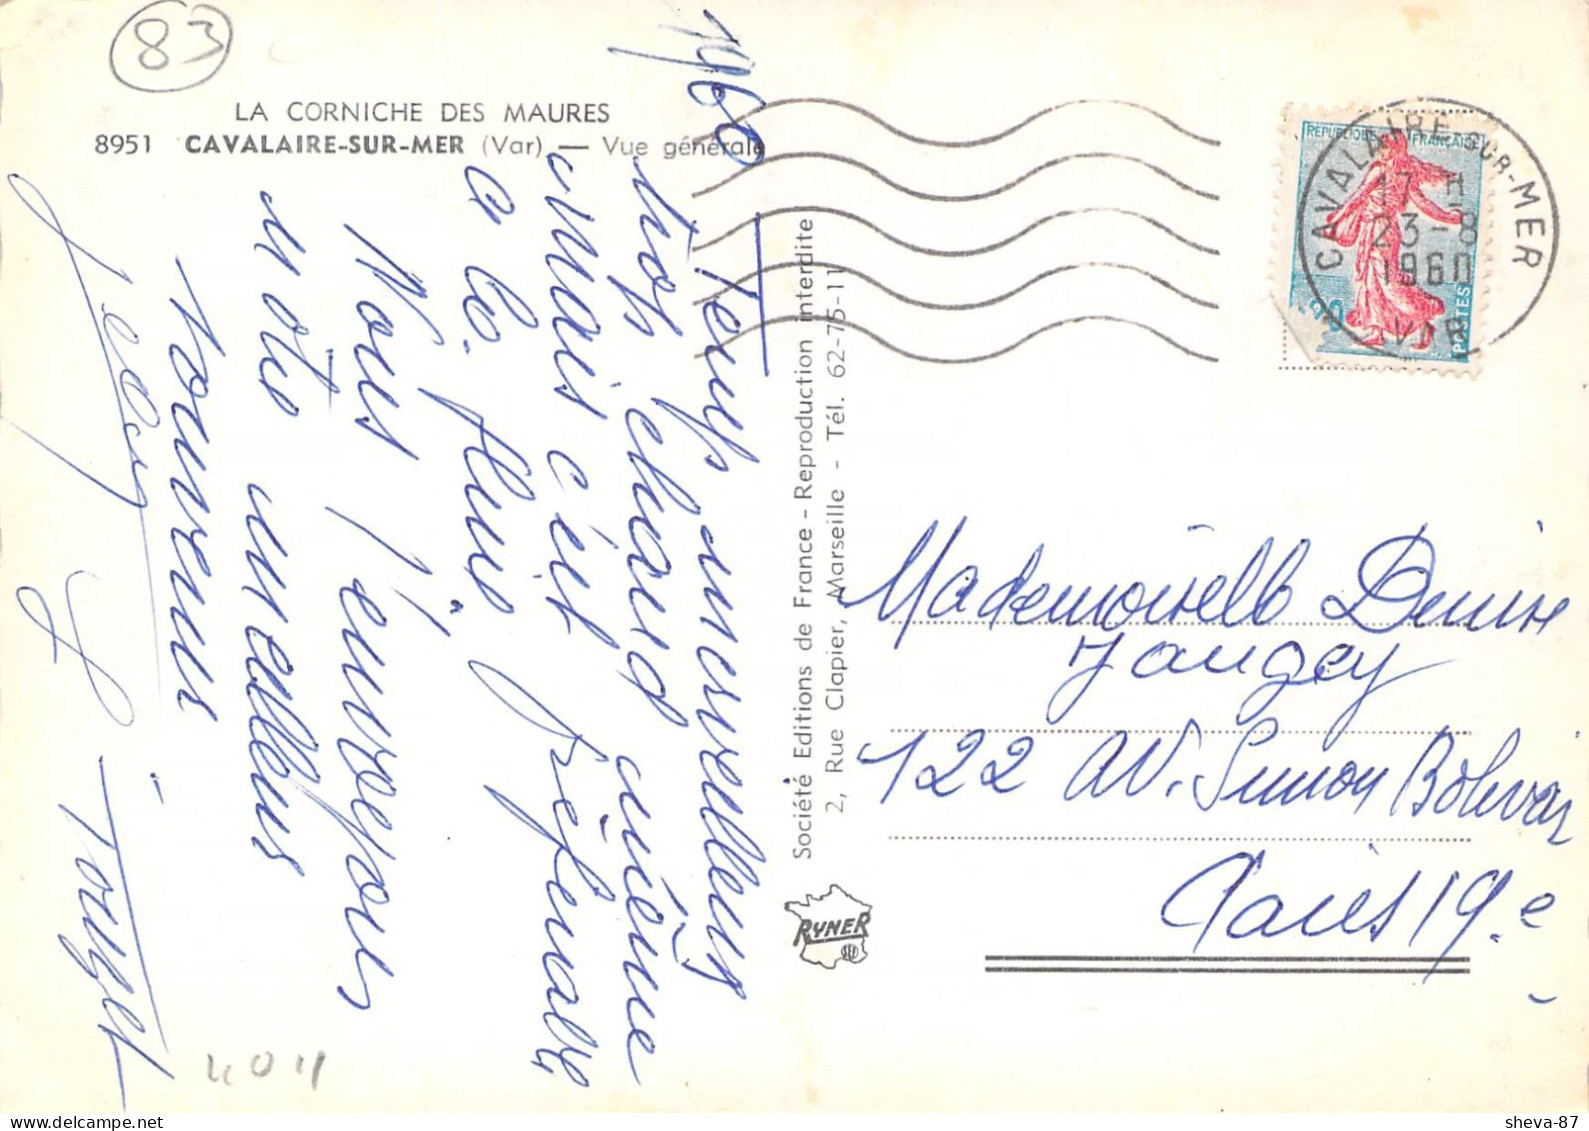 83
LA CORNICHE DES MAURES
8951 CAVALAIRE-SUR-MER (Var) — Vue générale
1960
Temps merveilleux
trop chaud même
mais c'est préférable
à la pluie.
Nous t'envoyons
nos meilleurs
souvenirs
Touzet
404
Société Editions de France - Reproduction interdite
2, Rue Clapier, Marseille - Tél. 62-75-11
RYNER
SEF
REPUBLIQUE FRANÇAISE
POSTES
CAVALAIRE-SUR-MER
17 H
23-8
1960
VAR
Mademoiselle Denise
Jaugey
122 Av. Simon Bolivar
Paris 19.e
sheva-87